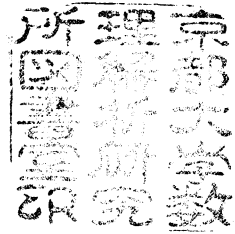 京都大學數
理解析研究
所圖書之印